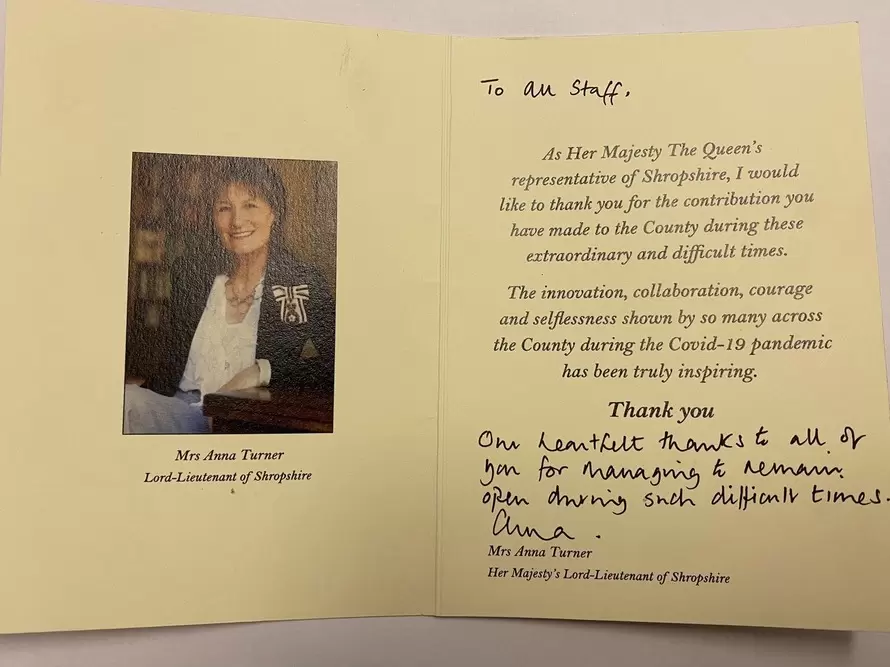 Mrs Anna Turner
Lord-Lieutenant of Shropshire
To all staff,
As Her Majesty The Queen's
representative of Shropshire, I would
like to thank you for the contribution you
have made to the County during these
extraordinary and difficult times.
The innovation, collaboration, courage
and selflessness shown by so many across
the County during the Covid-19 pandemic
has been truly inspiring.
Thank you
Our heartfelt thanks to all of
you for managing to remain
open during such difficult times.
Anna.
Mrs Anna Turner
Her Majesty's Lord-Lieutenant of Shropshire